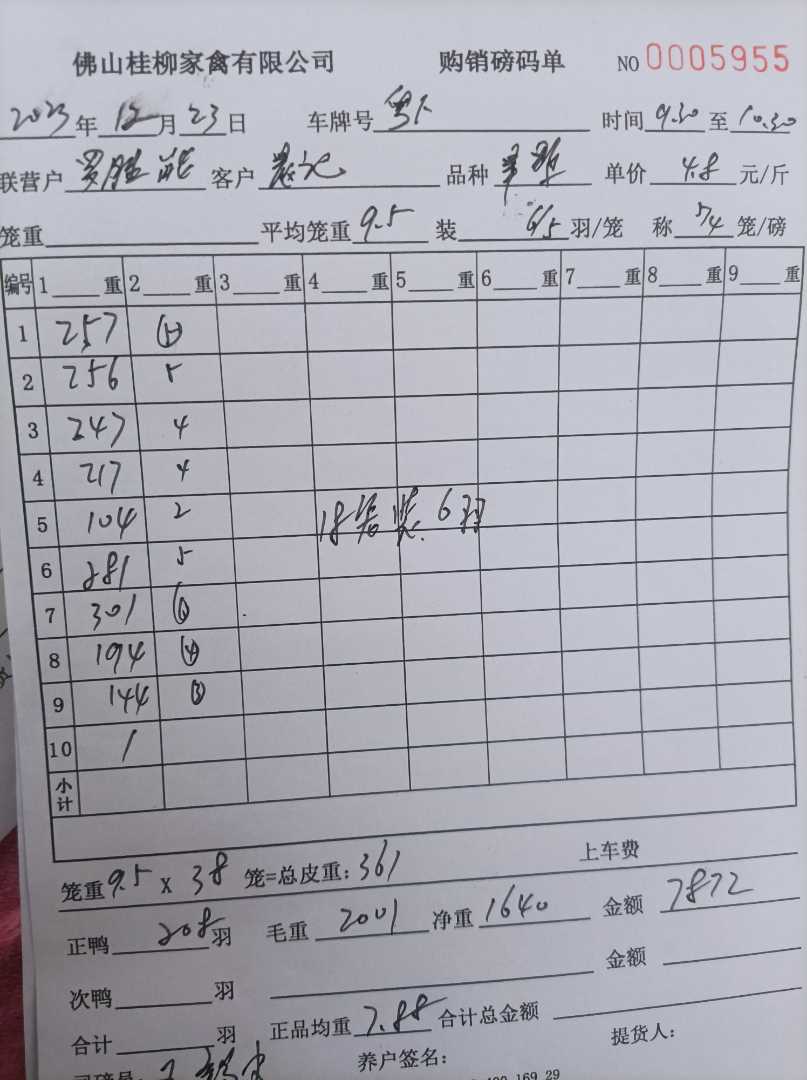 佛山桂柳家禽有限公司 购销磅码单 NO 0005955
2023年12月23日 车牌号 时间 9.30 至 10.30
联营户 客户 品种 单价 4.8 元/斤
笼重 平均笼重 9.5 装 6/5 羽/笼 称 5/4 笼/磅
编号 1 重 2 重 3 重 4 重 5 重 6 重 7 重 8 重 9 重
1 257 5
2 256 5
3 247 4
4 217 4
5 104 2
18笼装.6羽
6 281 5
7 301 6
8 194 4
9 144 3
10 /
小计
笼重 9.5 X 38 笼=总皮重: 361 上车费
正鸭 208 羽 毛重 2001 净重 1640 金额 7872
次鸭 羽 金额
合计 羽 正品均重 7.88 合计总金额
司磅员: 养户签名: 提货人:
169 29